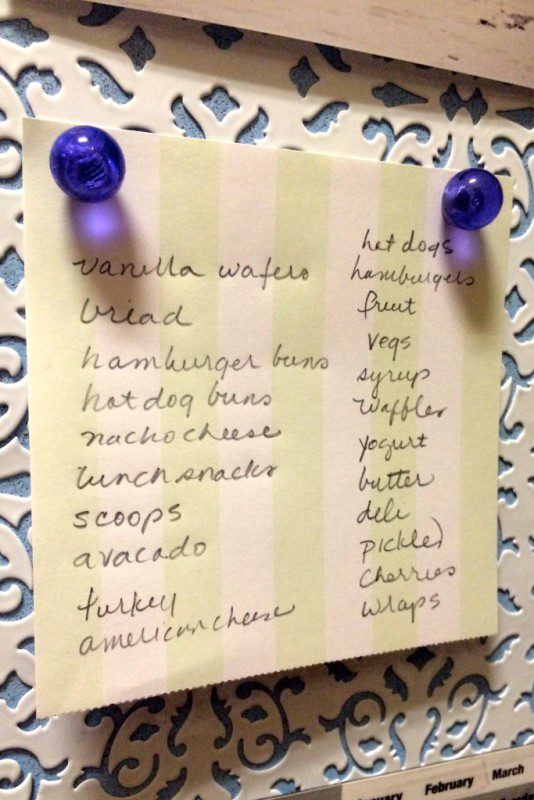 vanilla wafers
bread
hamburger buns
hot dog buns
nacho cheese
lunch snacks
scoops
avacado
turkey
american cheese
hot dogs
hamburgers
fruit
vegs
syrup
waffles
yogurt
butter
deli
pickles
cherries
wraps
February
March